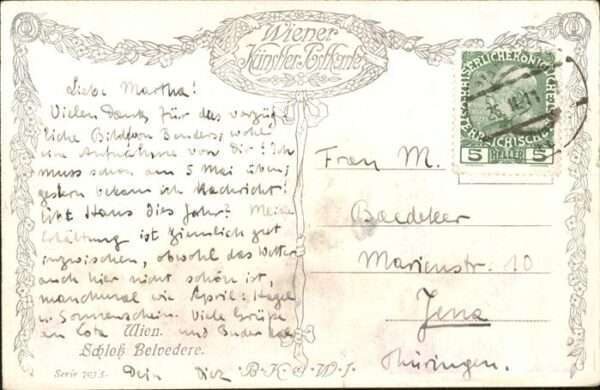 Wiener
Künstler-Postkarte
Liebe Martha!
Vielen Dank für das vorzüg-
liche Bildchen Benders, wohl
ein Aufnahme von Dir? Ich
muss schon am 5 Mai üben,
gestern bekam ich Nachricht!
Übt Hans dies Jahr? Meine
Erkältung ist ziemlich gut
inzwischen, obwohl das Wetter
auch hier nicht schön ist,
manchmal wie April: Hagel
u. Sonnenschein. Viele Grüsse
an Lota und
Wien.
Schloß Belvedere.
Serie 703/5.
B.K.W.I.
Dein
KAISERLICHE KÖNIGLICHE
ÖSTERREICHISCHE
5 HELLER 5
Frau M.
Baedeker
Marienstr. 10
Jena
Thüringen.